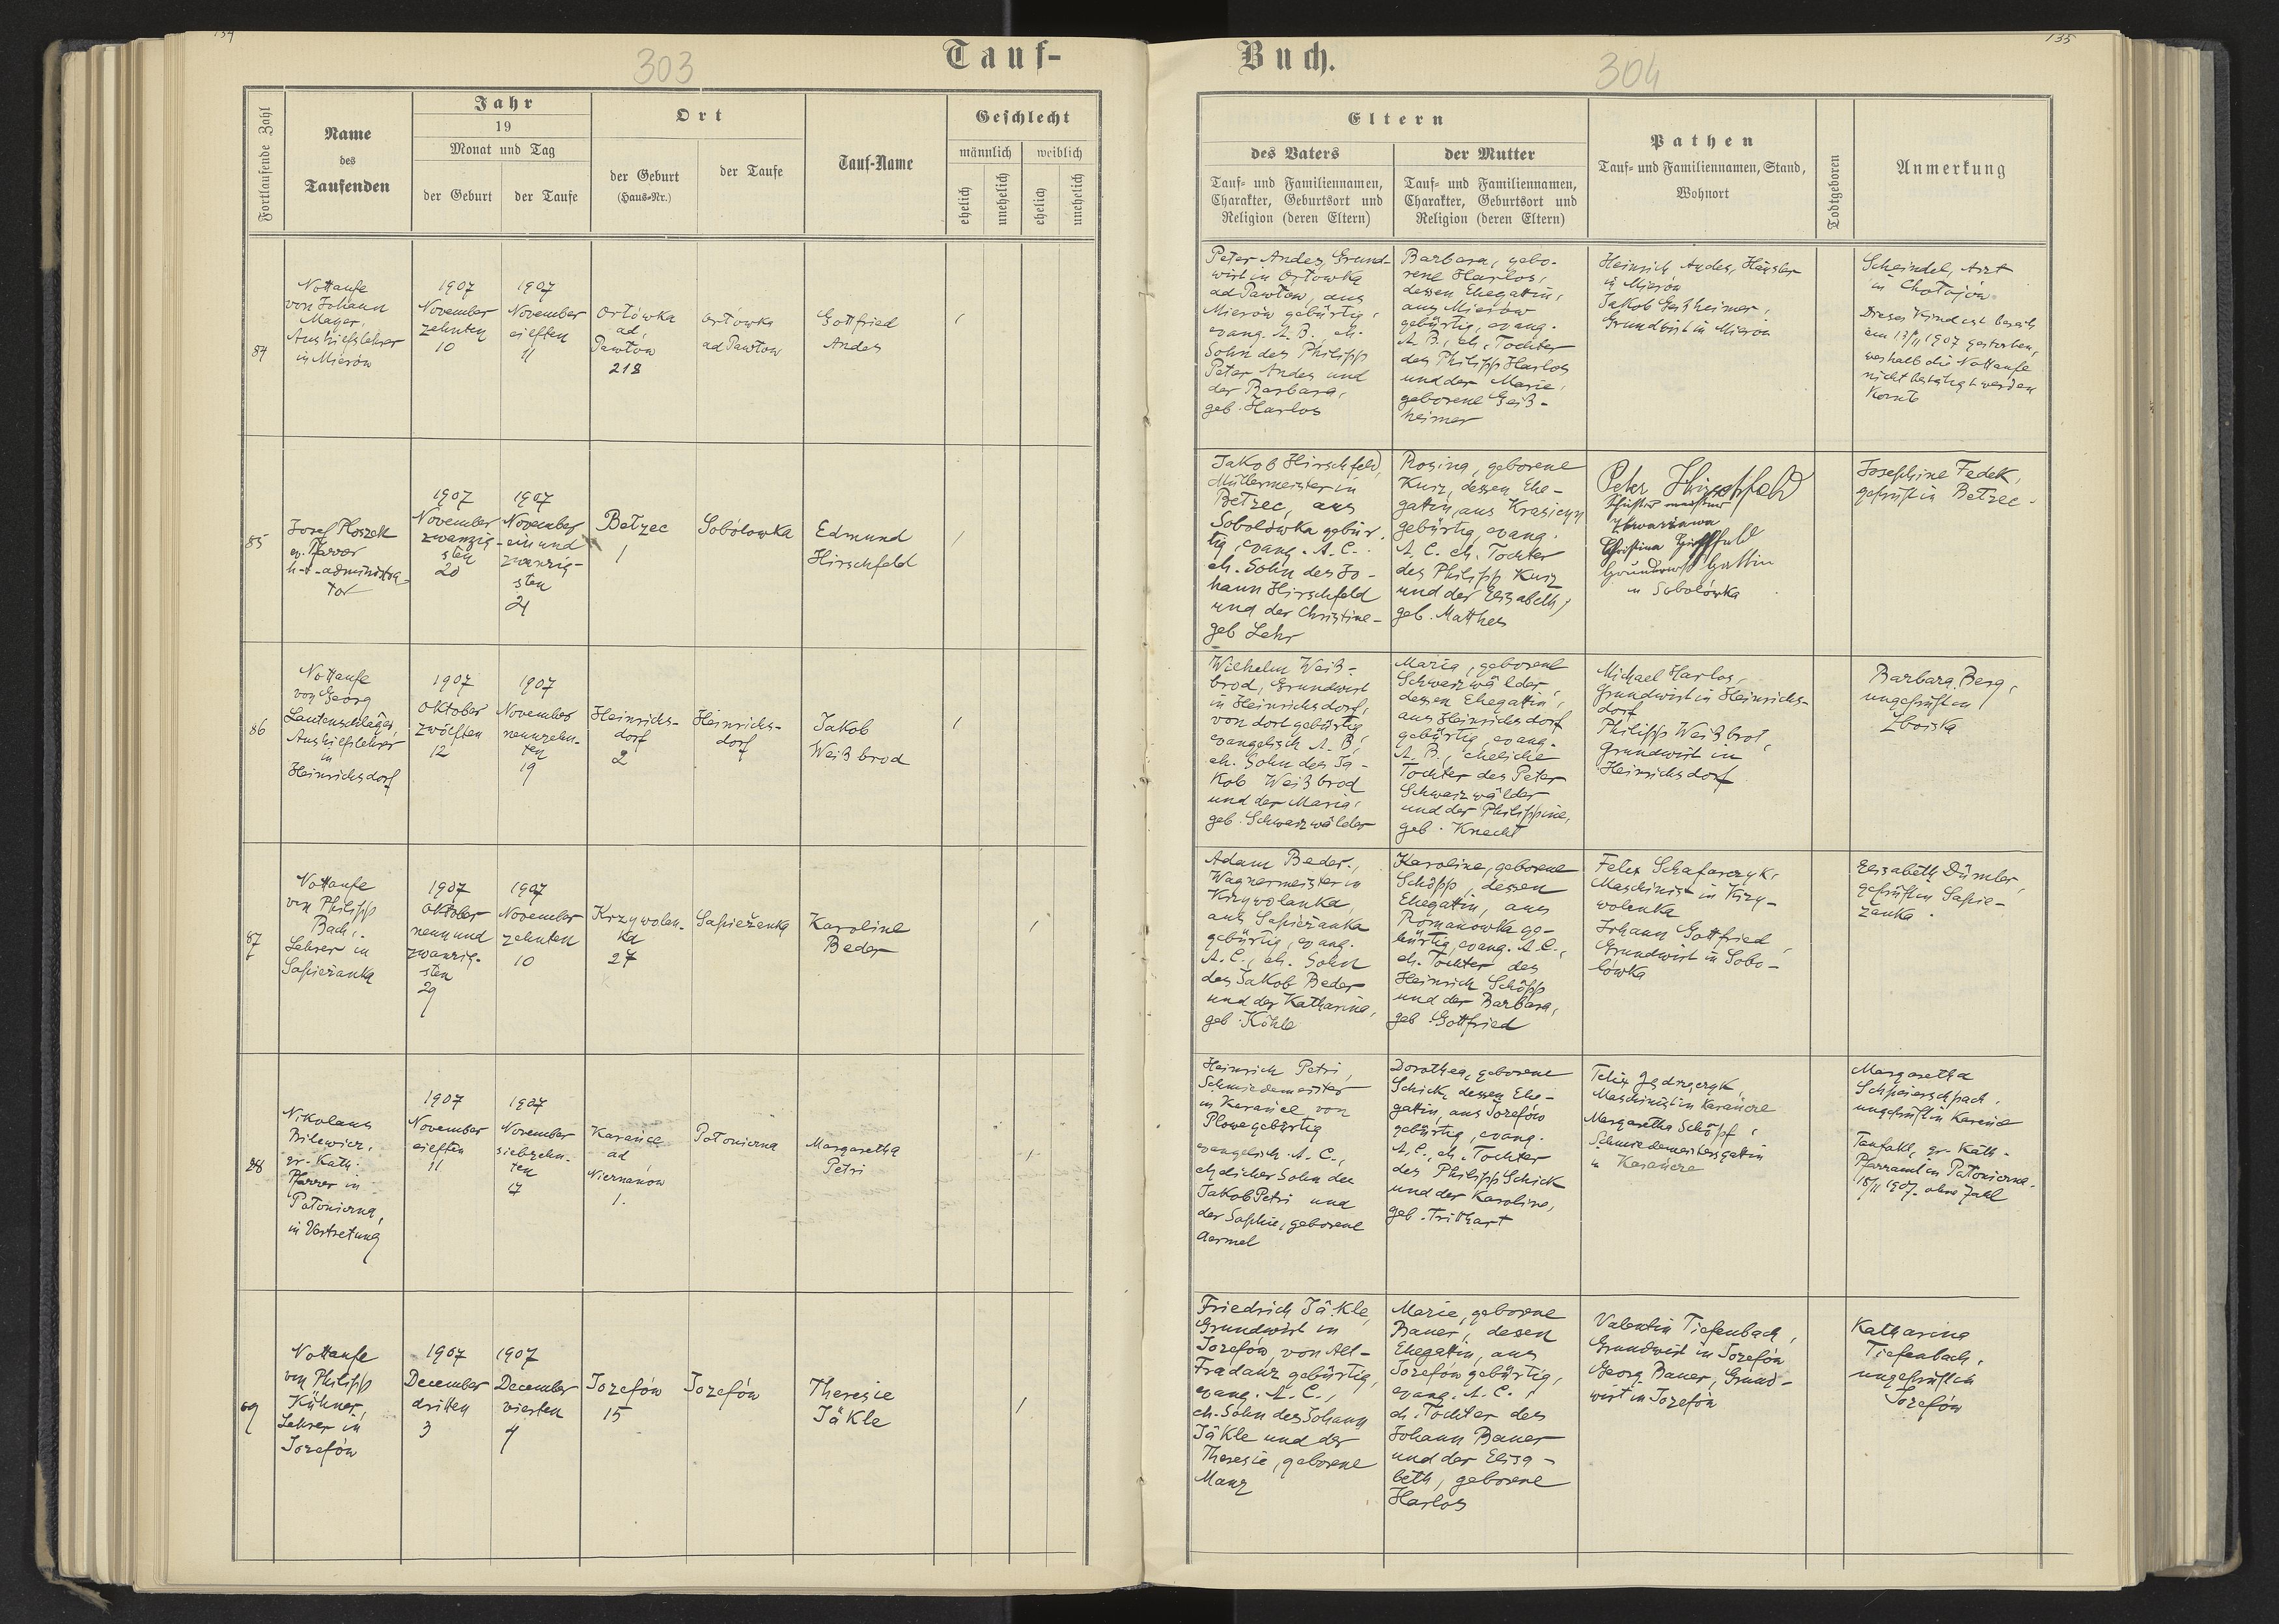 134
303
Tauf-
Fortlaufende Zahl
Name
des
Taufenden
Jahr
19
Monat und Tag
der Geburt
der Taufe
Ort
der Geburt
(Haus-Nr.)
der Taufe
Tauf-Name
Geschlecht
männlich
weiblich
ehelich
unehelich
ehelich
unehelich
84
Nottaufe
von Johann
Mayer,
Aushilfslehrer
in Mierów
1907
November
zehnten
10
1907
November
eilften
11
Ortówka
ad
Pawłow
218
Ortowka
ad Pawłow
Gottfried
Andes
85
Josef Ploszek
ev. Pfarrer
h-t-administra-
tor
1907
November
zwanzig-
sten
20
1907
November
ein und
zwanzig-
sten
21
Bełzec
1
Sobólowka
Edmund
Hirschfeld
86
Nottaufe
von Georg
Lautenschläger,
Aushilfslehrer
in
Heinrichsdorf
1907
Oktober
zwölften
12
1907
November
neunzehn-
ten
19
Heinrichs-
dorf
2
Heinrichs-
dorf
Jakob
Weißbrod
87
Nottaufe
von Philipp
Bach,
Lehrer in
Sapieżanka
1907
Oktober
neun und
zwanzig-
sten
29
1907
November
zehnten
10
Krzywolan-
ka
27
Sapieżanka
Karoline
Beder
88
Nikolaus
Bilewicz,
gr.-Kath.
Pfarrer in
Patonicrna,
in Vertretung
1907
November
eilften
11
1907
November
siebzehn-
ten
17
Karańce
ad
Niernanow
1.
Patonicrna
Margaretha
Petri
69
Nottaufe
von Philipp
Kühner,
Lehrer in
Jozefów
1907
December
dritten
3
1907
December
vierten
4
Jozefów
15
Jozefów
Theresie
Jäkle
135
Buch.
304
Eltern
des Vaters
Tauf- und Familiennamen,
Charakter, Geburtsort und
Religion (deren Eltern)
der Mutter
Tauf- und Familiennamen,
Charakter, Geburtsort und
Religion (deren Eltern)
Pathen
Tauf- und Familiennamen, Stand,
Wohnort
Todtgeboren
Anmerkung
Peter Andes, Grund-
wirt in Ortowka
ad Pawłow, aus
Mierów gebürtig,
evang. A. B., eh.
Sohn des Philipp
Peter Andes und
der Barbara,
geb. Harlos
Barbara, gebo-
rene Harlos,
dessen Ehegattin,
aus Mierów
gebürtig, evang.
A. B., eh. Tochter
des Philipp Harlos
und der Marie,
geborene Geiß-
heimer
Heinrich Andes, Häusler
in Mierow
Jakob Geißheimer,
Grundwirt in Mierow
Scheindel, Arzt
in Chołojów
Dieses Kind ist bereits
am 13/11 1907 gestorben,
weshalb die Nottaufe
nicht bestätigt werden
konnte
Jakob Hirschfeld,
Müllermeister in
Bełzec, aus
Sobolówka gebür-
tig, evang. A. C.
eh. Sohn des Jo-
hann Hirschfeld
und der Christine-
geb Lehr
Rosina, geborene
Kurz, dessen Ehe-
gattin, aus Krasiczyn
gebürtig, evang.
A. C. eh. Tochter
des Philipp Kurz
und der Elisabeth,
geb. Matthes
Peter Hirschfeld
Christina Hirschfeld
Gattin
in Sobolówka
Josephine Fedek,
geprüft in Bełzec.
Wilhelm Weiß-
brod, Grundwirt
in Heinrichsdorf,
von dort gebürtig,
evangelisch A. B.,
eh. Sohn des Ja-
kob Weißbrod
und der Maria,
geb. Schwarzwälder
Maria, geborene
Schwarzwälder,
dessen Ehegattin,
aus Heinrichsdorf
gebürtig, evang.
A. B., eheliche
Tochter des Peter
Schwarzwälder
und der Philippine,
geb. Knecht
Michael Harlos,
Grundwirt in Heinrichs-
dorf
Philipp Weißbrot,
Grundwirt in
Heinrichsdorf
Barbara Berg,
ungeprüft in
Zboiska
Adam Beder,
Wagnermeister in
Krzywolanka,
aus Sapieżanka
gebürtig, evang.
A. C., eh. Sohn
des Jakob Beder
und der Katharina,
geb. Köhle
Karoline, geborene
Schöpp, dessen
Ehegattin, aus
Romanowka ge-
bürtig, evang. A. C.,
eh. Tochter des
Heinrich Schöpp
und der Barbara,
geb. Gottfried
Felix Schafarczyk,
Maschinist in Krzy-
wolenka
Johann Gottfried,
Grundwirt in Sobo-
lówka
Elisabeth Dümler,
geprüft in Sapie-
żanka.
Heinrich Petri,
Schmiedemeister
in Karańce, von
Plowe gebürtig
evangelisch A. C.,
ehelicher Sohn des
Jakob Petri und
der Sophie, geborene
Aermel
Dorothea, geborene
Schick, dessen Ehe-
gattin, aus Jozefów
gebürtig, evang.
A. C., eh. Tochter
des Philipp Schick
und der Karoline,
geb. Tritthart
Felix Jędrzejczyk,
Maschinist in Karańce
Margaretha Schöpf,
Schmiedemeistersgattin
in Karańcze
Margaretha
Schpeierschpach,
ungeprüft in Karańce
Taufakt, gr.-Kath.
Pfarramt in Patonicrna.
18/11 1907. ohne Zahl
Friedrich Jäkle,
Grundwirt in
Jozefów, von Alt-
Fradanz gebürtig,
evang. A. C.,
eh. Sohn des Johann
Jäkle und der
Theresie, geborene
Manz
Marie, geborene
Bauer, dessen
Ehegattin, aus
Jozefów gebürtig,
evang. A. C.,
eh. Tochter des
Johann Bauer
und der Elisa-
beth, geborene
Harlos
Valentin Tiefenbach,
Grundwirt in Jozefów
Georg Bauer, Grund-
wirt in Jozefów
Katharina
Tiefenbach,
ungeprüft in
Jozefów